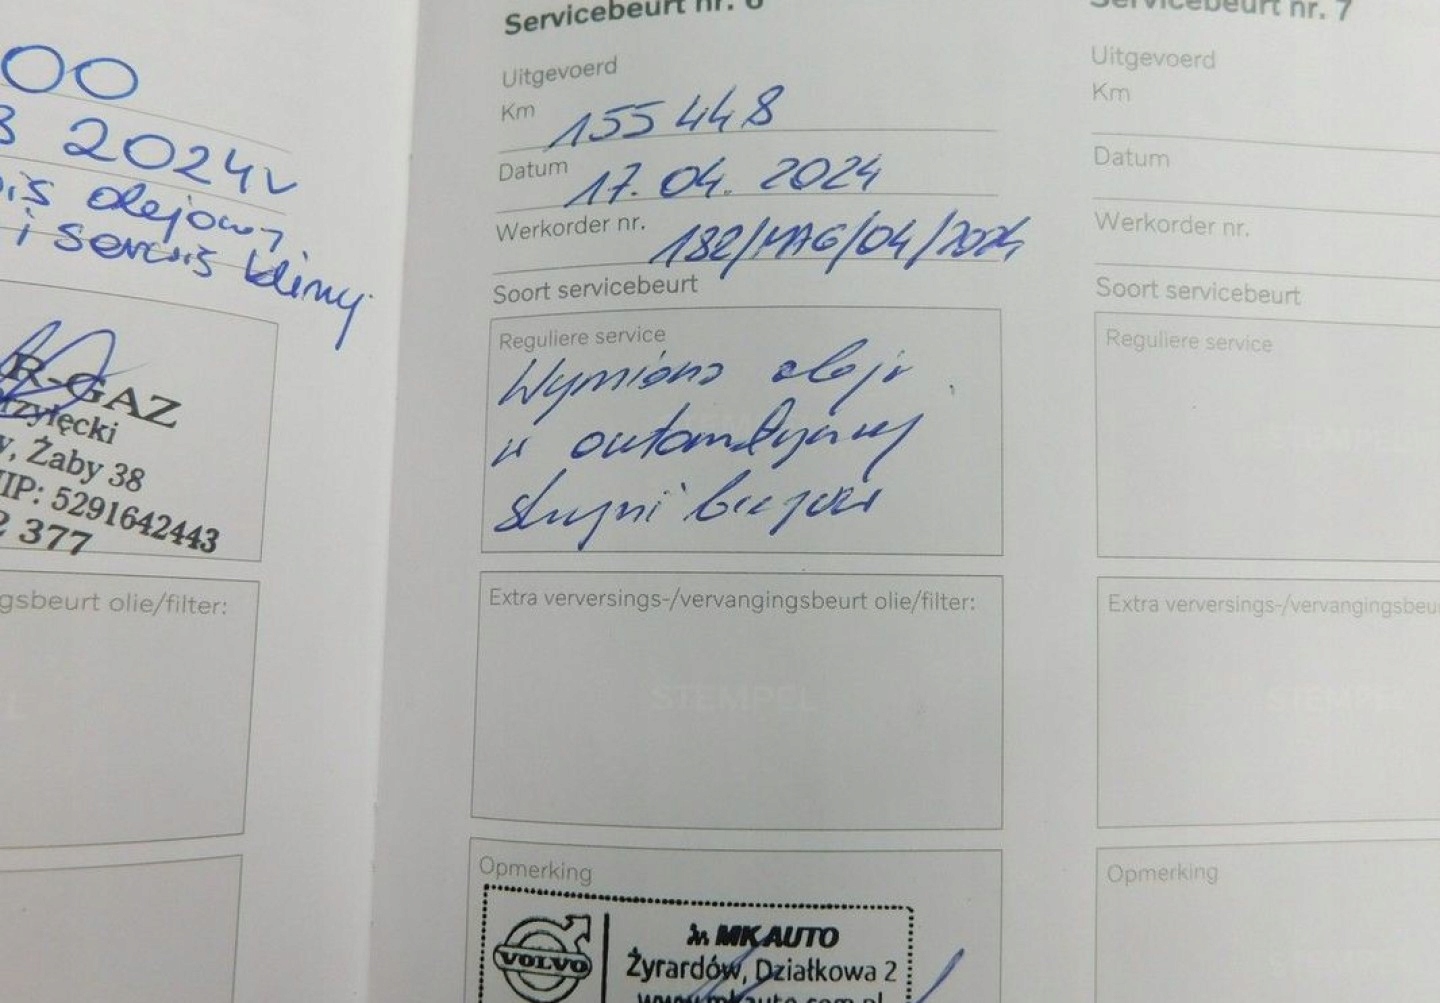 00
3 2024r
olejowy
i serwis klimy
R-GAZ
Żaby 38
NIP: 5291642443
2 377
gsbeurt olie/filter:
Servicebeurt nr. 6
Uitgevoerd
Km 155 448
Datum 17.04.2024
Werkorder nr. 182/MAG/04/2024
Soort servicebeurt
Reguliere service
Wymiana oleju
w automatycznej
skrzyni biegów
Extra verversings-/vervangingsbeurt olie/filter:
STEMPEL
Opmerking
VOLVO
MK AUTO
Żyrardów, Działkowa 2
www.mkauto.com.pl
Servicebeurt nr. 7
Uitgevoerd
Km
Datum
Werkorder nr.
Soort servicebeurt
Reguliere service
Extra verversings-/vervangingsbeu
STEMPEL
Opmerking